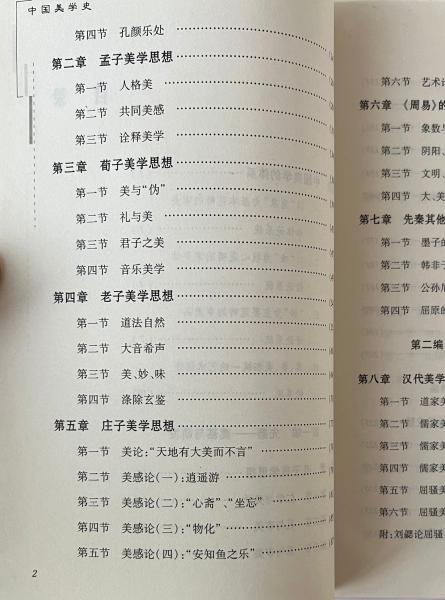 中国美学史
第四节 孔颜乐处
第二章 孟子美学思想
第一节 人格美
第二节 共同美感
第三节 诠释美学
第三章 荀子美学思想
第一节 美与“伪”
第二节 礼与美
第三节 君子之美
第四节 音乐美学
第四章 老子美学思想
第一节 道法自然
第二节 大音希声
第三节 美、妙、味
第四节 涤除玄鉴
第五章 庄子美学思想
第一节 美论:“天地有大美而不言”
第二节 美感论(一):逍遥游
第三节 美感论(二):“心斋”、“坐忘”
第四节 美感论(三):“物化”
第五节 美感论(四):“安知鱼之乐”
2
第六节 艺术
第六章 《周易》的
第一节 象数
第二节 阴阳、
第三节 文明、
第四节 大、美
第七章 先秦其他
第一节 墨子的
第二节 韩非子
第三节 公孙尼
第四节 屈原的
第二编
第八章 汉代美学
第一节 道家美
第二节 儒家美
第三节 儒家美
第四节 儒家美
第五节 屈骚美
第六节 屈骚美
附:刘勰论屈骚